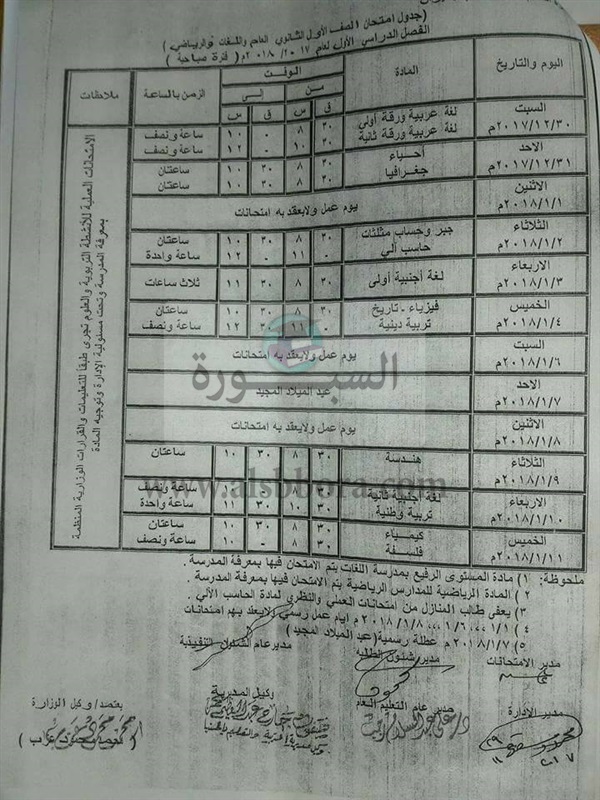 (جدول امتحان الصف الأول الثانوي العام واللغات والرياضي)
الفصل الدراسي الأول لعام ٢٠١٧/٢٠١٨م ( فترة صباحية )
اليوم والتاريخ المادة الوقت الزمن بالساعة ملاحظات
من إلى
ق س ق س
السبت ٢٠١٧/١٢/٣٠م
لغة عربية ورقة أولى ٣٠ ٨ - ١٠ ساعة ونصف
لغة عربية ورقة ثانية ٣٠ ١٠ - ١٢ ساعة ونصف
الاحد ٢٠١٧/١٢/٣١م
أحياء
جغرافيا ٣٠ ٨ ٣٠ ١٠ ساعتان
الاثنين ٢٠١٨/١/١م
يوم عمل ولايعقد به امتحانات
الثلاثاء ٢٠١٨/١/٢م
جبر وحساب مثلثات ٣٠ ٨ ٣٠ ١٠ ساعتان
حاسب آلي - ١١ - ١٢ ساعة واحدة
الاربعاء ٢٠١٨/١/٣م
لغة أجنبية أولى ٣٠ ٨ ٣٠ ١١ ثلاث ساعات
الخميس ٢٠١٨/١/٤م
فيزياء - تاريخ ٣٠ ٨ ٣٠ ١٠ ساعتان
تربية دينية - ١١ ٣٠ ١٢ ساعة ونصف
السبت ٢٠١٨/١/٦م
يوم عمل ولايعقد به امتحانات
الاحد ٢٠١٨/١/٧م
عيد الميلاد المجيد
الاثنين ٢٠١٨/١/٨م
يوم عمل ولايعقد به امتحانات
الثلاثاء ٢٠١٨/١/٩م
هندسة ٣٠ ٨ ٣٠ ١٠ ساعتان
الاربعاء ٢٠١٨/١/١٠م
لغة أجنبية ثانية ٣٠ ٨ - ١٠ ساعة ونصف
تربية وطنية ٣٠ ١٠ ٣٠ ١١ ساعة واحدة
الخميس ٢٠١٨/١/١١م
كيمياء ٣٠ ٨ ٣٠ ١٠ ساعتان
فلسفة ٣٠ ٨ - ١٠ ساعة ونصف
الامتحانات العملية للأنشطة التربوية والعلوم تجرى طبقا للتعليمات والقرارات الوزارية المنظمة
بمعرفة المدرسة وتحت مسئولية الإدارة وتوجيه المادة
السبورة
www.alsbbora.com
ملحوظة: ١) مادة المستوى الرفيع بمدرسة اللغات يتم الامتحان فيها بمعرفة المدرسة .
٢) المادة الرياضية للمدارس الرياضية يتم الامتحان فيها بمعرفة المدرسة .
٣) يعفى طالب المنازل من امتحانات العملي والنظري لمادة الحاسب الآلي .
٤) ١/١ ،، ١/٦ ،، ٢٠١٨/١/٨م ايام عمل رسمي لايعقد بهم امتحانات
٥) ٢٠١٨/١/٧م عطلة رسمية(عيد الميلاد المجيد)
مدير الامتحانات مدير شئون الطلبة مديرعام الشئون التنفيذية
مدير الإدارة مدير عام التعليم العام وكيل المديرية يعتمد/ وكيل الوزارة